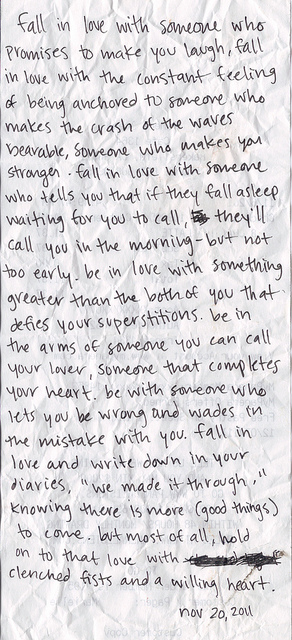 fall in love with someone who
promises to make you laugh, fall
in love with the constant feeling
of being anchored to someone who
makes the crash of the waves
bearable, someone who makes you
stronger. fall in love with someone
who tells you that if they fall asleep
waiting for you to call, they'll
call you in the morning - but not
too early. be in love with something
greater than the both of you that
defies your superstitions. be in
the arms of someone you can call
your lover, someone that completes
your heart. be with someone who
lets you be wrong and wades in
the mistake with you. fall in
love and write down in your
diaries, "we made it through,"
knowing there is more (good things)
to come. but most of all, hold
on to that love with
clenched fists and a willing heart.
nov 20, 2011